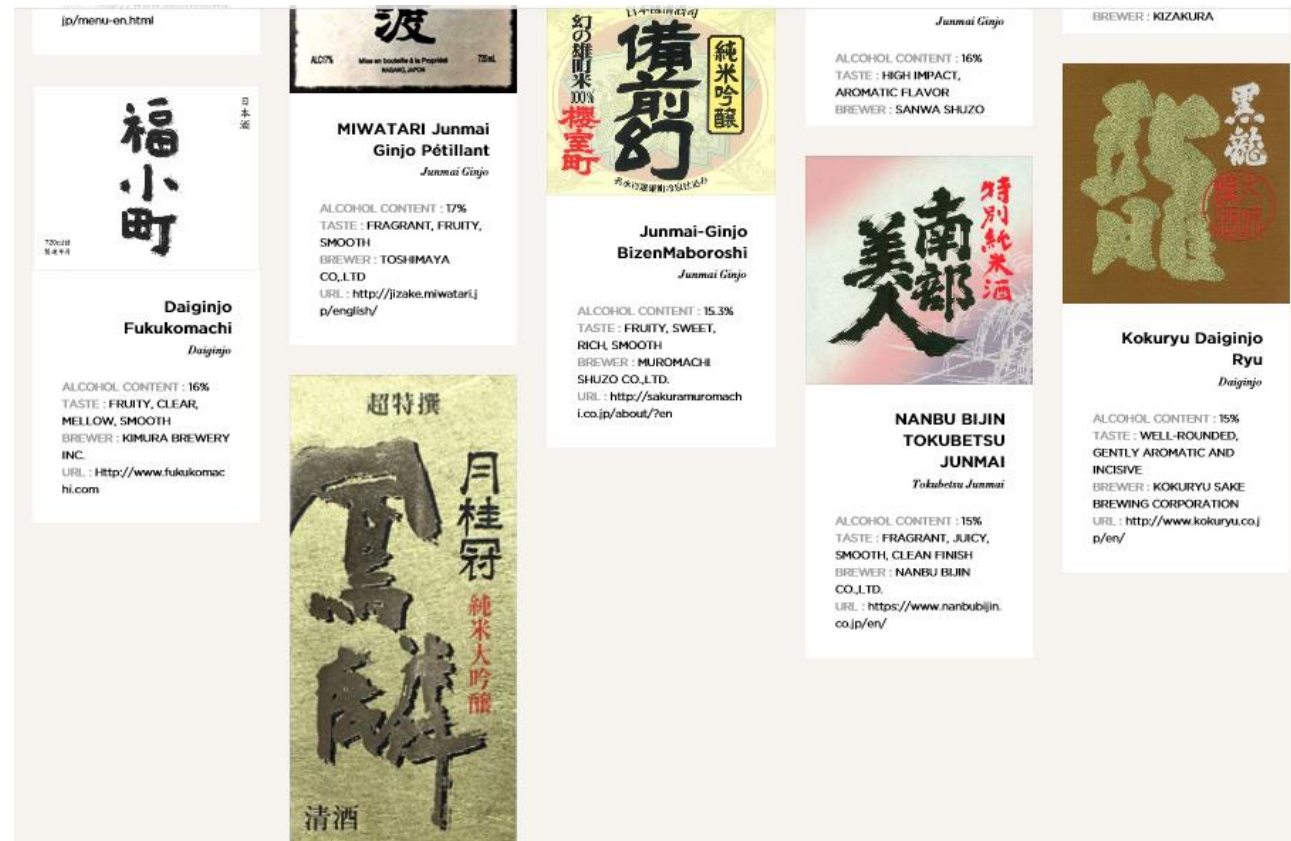 jp/menu-en.html
福小町
日本酒
720ml詰
Daiginjo
Fukukomachi
Daiginjo
ALCOHOL CONTENT : 16%
TASTE : FRUITY, CLEAR,
MELLOW, SMOOTH
BREWER : KIMURA BREWERY
INC.
URL : Http://www.fukukomac
hi.com
渡
ALC17%
Mise en bouteille à la Propriété
NAGANO, JAPON
720mL
MIWATARI Junmai
Ginjo Pétillant
Junmai Ginjo
ALCOHOL CONTENT : 17%
TASTE : FRAGRANT, FRUITY,
SMOOTH
BREWER : TOSHIMAYA
CO,.LTD
URL : http://jizake.miwatari.j
p/english/
超特撰
月桂冠
鳳麟
純米大吟醸
清酒
幻の雄町米100%
櫻室町
備前幻
純米吟醸
Junmai-Ginjo
BizenMaboroshi
Junmai Ginjo
ALCOHOL CONTENT : 15.3%
TASTE : FRUITY, SWEET,
RICH, SMOOTH
BREWER : MUROMACHI
SHUZO CO.,LTD.
URL : http://sakuramuromach
i.co.jp/about/?en
Junmai Ginjo
ALCOHOL CONTENT : 16%
TASTE : HIGH IMPACT,
AROMATIC FLAVOR
BREWER : SANWA SHUZO
特別純米酒
南部
美人
NANBU BIJIN
TOKUBETSU
JUNMAI
Tokubetsu Junmai
ALCOHOL CONTENT : 15%
TASTE : FRAGRANT, JUICY,
SMOOTH, CLEAN FINISH
BREWER : NANBU BIJIN
CO.,LTD.
URL : https://www.nanbubijin.
co.jp/en/
BREWER : KIZAKURA
黒龍
龍
Kokuryu Daiginjo
Ryu
Daiginjo
ALCOHOL CONTENT : 15%
TASTE : WELL-ROUNDED,
GENTLY AROMATIC AND
INCISIVE
BREWER : KOKURYU SAKE
BREWING CORPORATION
URL : http://www.kokuryu.co.j
p/en/